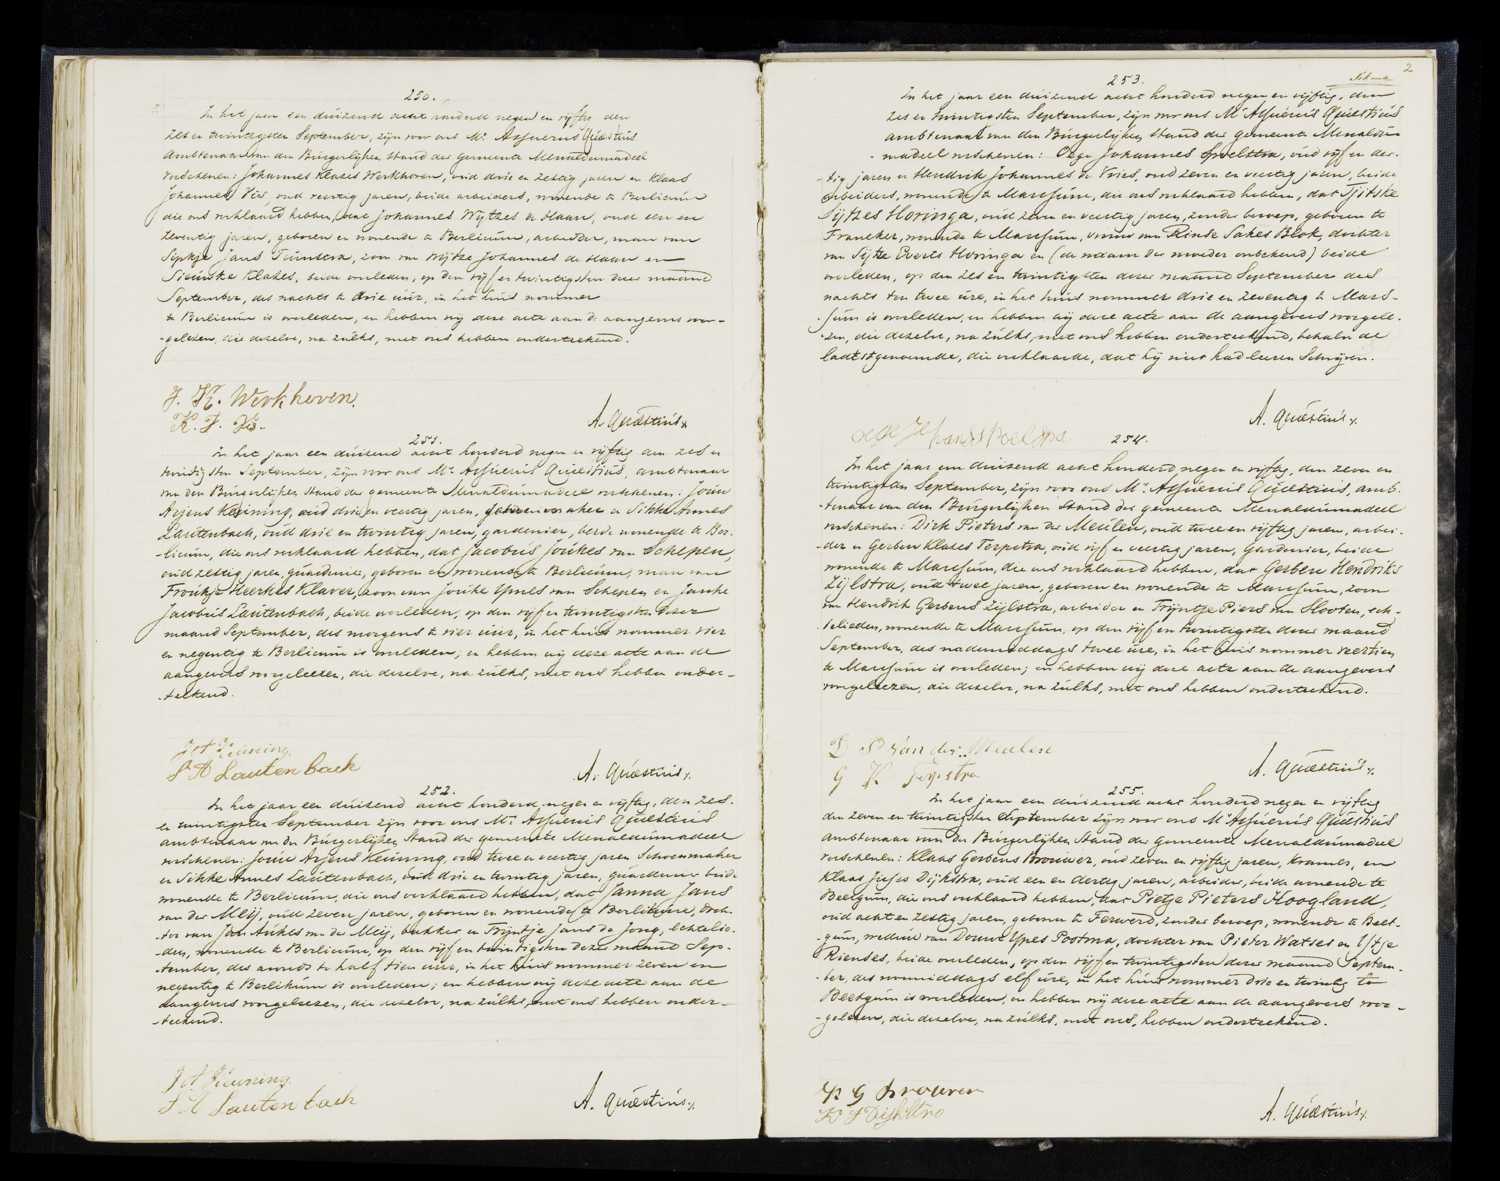 250.
In het jaar een duizend acht honderd negen en vijftig den
zes en twintigsten September, zijn voor ons Mr. Assuerus Quæstius
Ambtenaar van den Burgerlijken Stand der gemeente Menaldumadeel
verschenen: Johannes Klazes Werkhoven, oud drie en zestig jaren en Klaas
Johannes Vis, oud veertig jaren, beide arbeiders, wonende te Berlicum
die ons verklaard hebben, dat Johannes Wytzes de Haan, oud een en
zeventig jaren, geboren en wonende te Berlicum, arbeider, man van
Sipkje Jans Tuinstra, zoon van Wijtze Johannes de Haan en
Klazes, beide overleden, op den vijf en twintigsten dezer maand
September, des nachts te drie uur, in het huis nommer
te Berlicum is overleden, en hebben wij deze acte aan de aangevers voor-
-gelezen, die dezelve, na zulks, met ons hebben onderteekend.
J. K. Werkhoven.
K. J. Vis.
A. Quæstius
251.
In het jaar een duizend acht honderd negen en vijftig den zes en
twintigsten September, zijn voor ons Mr. Assuerus Quæstius, ambtenaar
van den Burgerlijken Stand der gemeente Menaldumadeel verschenen: Jouw
Arjens Keuning, oud drie en veertig jaren, schoenmaker en Sikke Annes
Lautenbach, oud drie en twintig jaren, gardenier, beide wonende te Ber-
-licum, die ons verklaard hebben, dat Jacobus Joukes van Schepen,
oud zestig jaren, guardenier, geboren en wonende te Berlicum, man van
Froukje Heerkes Klaver, zoon van Jouke Ypes van Schepen en Janke
Jacobus Lautenbach, beide overleden, op den vijf en twintigsten dezer
maand September, des morgens te vier uur, in het huis nommer vier
en negentig te Berlicum is overleden; en hebben wij deze acte aan de
aangevers voorgelezen, die dezelve, na zulks, met ons hebben onder-
-teekend.
J A Keuning
S A Lautenbach
A. Quæstius
252.
In het jaar een duizend acht honderd negen en vijftig, den zes-
en twintigsten September zijn voor ons Mr. Assuerus Quæstius
ambtenaar van den Burgerlijken Stand der gemeente Menaldumadeel
verschenen: Jouw Arjens Keuning, oud twee en veertig jaren Schoenmaker
en Sikke Annes Lautenbach, oud drie en twintig jaren, guardenier beide
wonende te Berlicum, die ons verklaard hebben, dat Janna Jans
van der Meij, oud zeven jaren, geboren en wonende te Berlikum, doch-
-ter van Jan Aukes van der Meij, bakker en Trijntje Jans de Jong, echtelie-
-den, wonende te Berlicum, op den vijf en twintigsten dezer maand Sep-
-tember, des avonds te half tien uur, in het huis nommer zeven en
negentig te Berlikum is overleden; en hebben wij deze acte aan de
aangevers voorgelezen, die dezelve, na zulks, met ons hebben onder-
-teekend.
J A Keuning
S A Lautenbach
A. Quæstius
2
253.
In het jaar een duizend acht honderd negen en vijftig, den
zes en twintigsten September, zijn voor ons Mr. Assuerus Quæstius
ambtenaar van den Burgerlijken Stand der gemeente Menaldu-
-madeel verschenen: Oege Johannes Spoelstra, oud vijf en der-
-tig jaren en Hendrik Johannes de Vries, oud zeven en veertig jaren, beide
arbeiders, wonende te Marssum, die ons verklaard hebben, dat Tjitske
Sijtzes Horinga, oud zeven en veertig jaren, zonder beroep, geboren te
Franeker, wonende te Marssum, vrouw van Rinse Sakes Blok, dochter
van Sijtze Everts Horinga en (de naam der moeder onbekend) beide
overleden, op den zes en twintigsten dezer maand September des
nachts ten twee ure, in het huis nommer drie en zeventig te Mars-
-sum is overleden, en hebben wij deze acte aan de aangevers voorgele-
-zen, die dezelve, na zulks, met ons hebben onderteekend, behalve de
laatstgenoemde, die verklaarde, dat hij niet had leeren Schrijven.
A. Quæstius
254.
In het jaar een duizend acht honderd negen en vijftig, den zeven en
twintigsten September, zijn voor ons Mr. Assuerus Quæstius, amb-
-tenaar van den Burgerlijken Stand der gemeente Menaldumadeel
verschenen: Dirk Pieters van der Meulen, oud twee en vijftig jaren, arbei-
-der en Gerben Klazes Terpstra, oud vijf en veertig jaren, Gardenier, beide
wonende te Marssum, die ons verklaard hebben, dat Gerben Hendriks
Zijlstra, oud twee jaren, geboren en wonende te Marssum, zoon
van Hendrik Gerbens Zijlstra, arbeider en Trijntje Piers van Slooten, ech-
-telieden, wonende te Marssum, op den vijf en twintigsten dezer maand
September, des nademiddags twee ure, in het huis nommer veertien
te Marssum is overleden; en hebben wij deze acte aan de aangevers
voorgelezen, die dezelve, na zulks, met ons hebben onderteekend.
D P van der Meulen
G K Terpstra
A. Quæstius
255.
In het jaar een duizend acht honderd negen en vijftig
den zeven en twintigsten September zijn voor ons Mr. Assuerus Quæstius
ambtenaar van den Burgerlijken Stand der gemeente Menaldumadeel
verschenen: Klaas Gerbens Brouwer, oud zeven en vijftig jaren, kramer, en
Klaas Dijkstra, oud een en dertig jaren, arbeider, beide wonende te
Beetgum, die ons verklaard hebben, dat Pietje Pieters Hoogland,
oud acht en zestig jaren, geboren te Ferwerd, zonder beroep, wonende te Beet-
-gum, weduwe van Douwe Ypes Postma, dochter van Pieter Watses en IJtje
Rienses, beide overleden, op den vijf en twintigsten dezer maand Septem-
-ber, des voormiddags elf ure, in het huis nommer drie en twintig te
Beetgum is overleden, en hebben wij deze acte aan de aangevers voor-
-gelezen, die dezelve, na zulks, met ons, hebben onderteekend.
K G Brouwer
K J Dijkstra
A. Quæstius